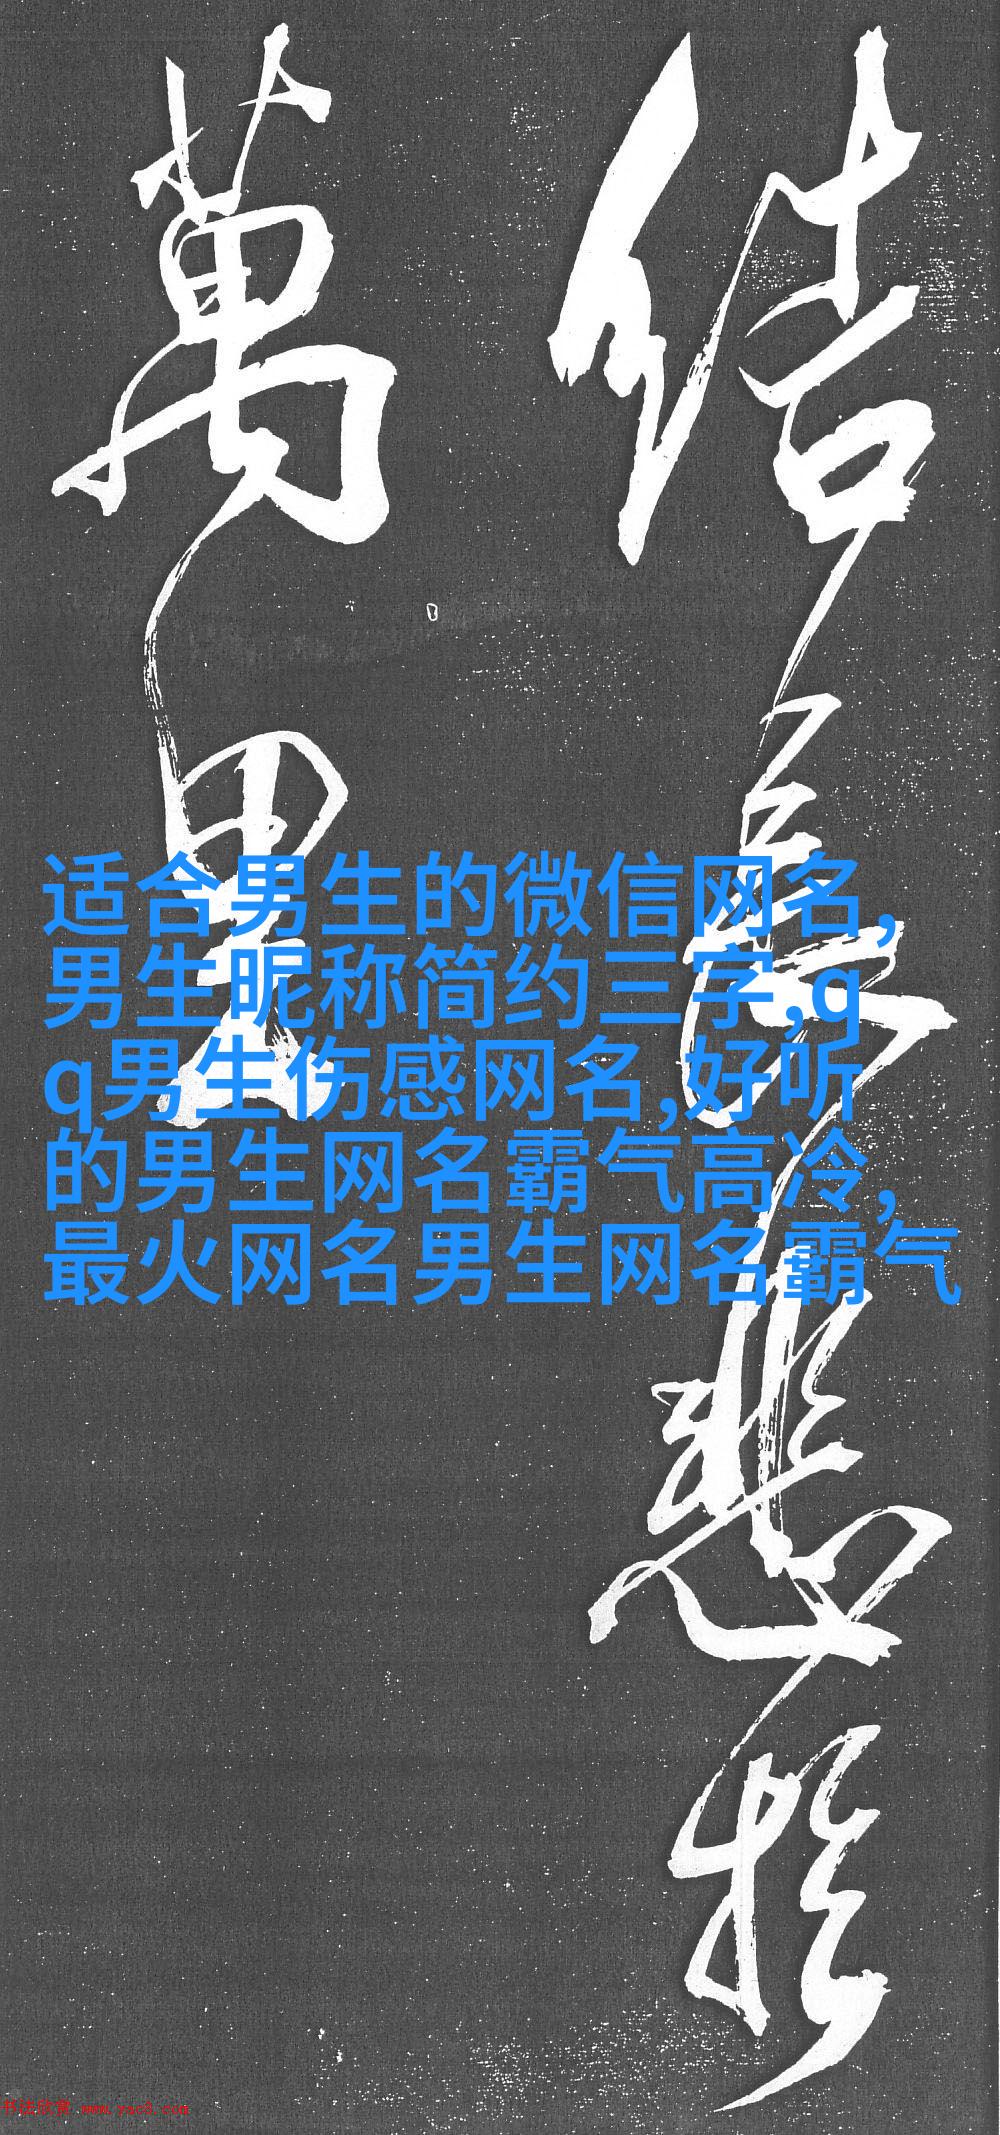 结长悲于
萬里
适合男生的微信网名,
男生昵称简约三字,q
q男生伤感网名,好听
的男生网名霸气高冷,
最火网名男生网名霸气
书法欣赏 www.yac8.com